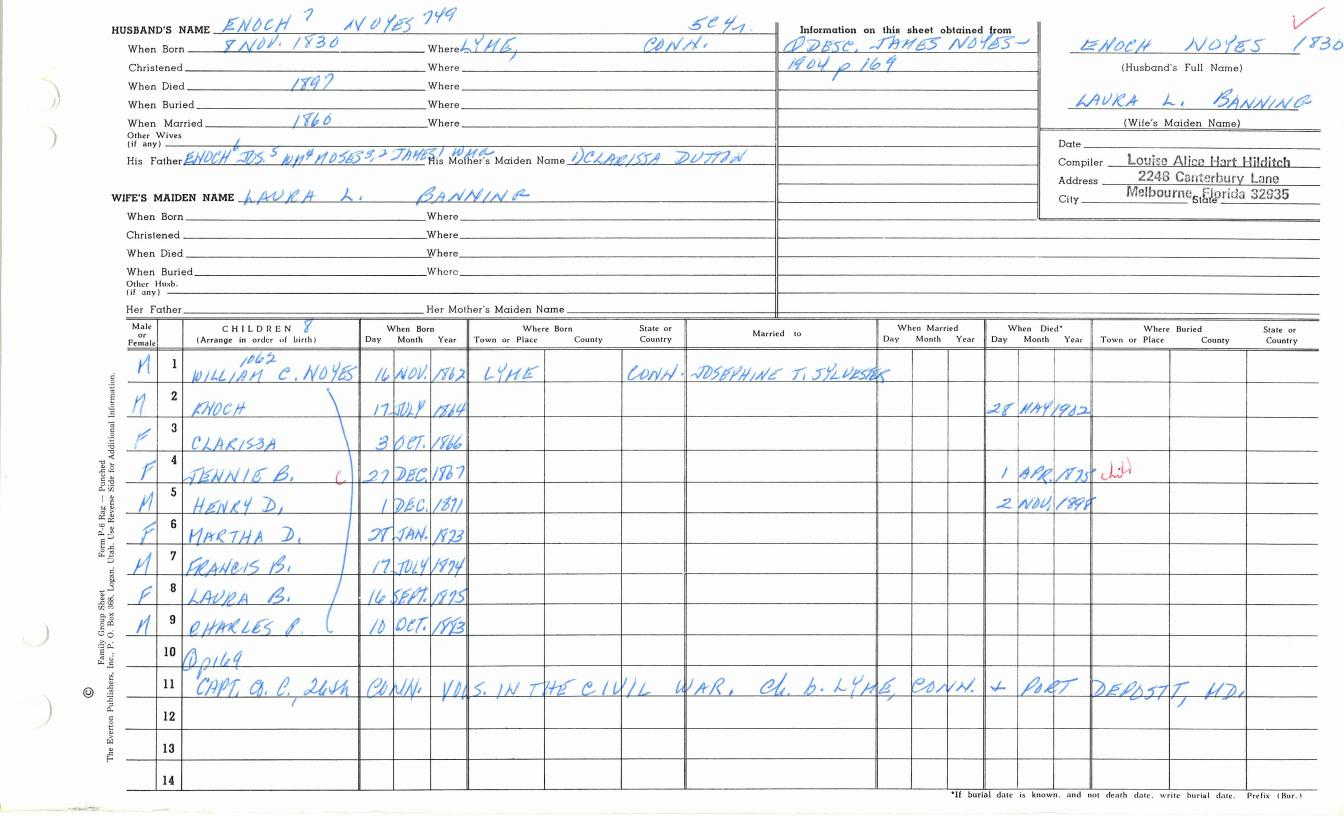 HUSBAND'S NAME ENOCH 7 NOYES 749 5C4r
When Born 8 NOV. 1830 Where LYME, CONN.
Christened Where
When Died 1897 Where
When Buried Where
When Married 1860 Where
Other Wives
(if any)
His Father ENOCH 6 JOS. 5 WM 4 MOSES 3, 2 JAMES 1 WMS His Mother's Maiden Name 1) CLARISSA DUTTON
WIFE'S MAIDEN NAME LAURA L. BANNING
When Born Where
Christened Where
When Died Where
When Buried Where
Other Husb.
(if any)
Her Father Her Mother's Maiden Name
Information on this sheet obtained from
① DESC. JAMES NOYES -
1904 p 169
ENOCH NOYES 1830
(Husband's Full Name)
LAURA L. BANNING
(Wife's Maiden Name)
Date
Compiler Louise Alice Hart Hilditch
Address 2246 Canterbury Lane
Melbourne, Florida 32935
City State
Male or Female CHILDREN 8 (Arrange in order of birth) When Born Day Month Year Where Born Town or Place County State or Country Married to When Married Day Month Year When Died* Day Month Year Where Buried Town or Place County State or Country
1062
M 1 WILLIAM C. NOYES 16 NOV. 1862 LYME CONN. JOSEPHINE T. SYLVESTER
M 2 ENOCH 17 JULY 1864 28 MAY 1902
F 3 CLARISSA 3 OCT. 1866
F 4 JENNIE B. C 27 DEC. 1867 1 APR. 1875 child
M 5 HENRY D. 1 DEC. 1871 2 NOV. 1898
F 6 MARTHA D. 28 JAN. 1873
M 7 FRANCIS B. 17 JULY 1874
F 8 LAURA B. 16 SEPT. 1875
M 9 CHARLES P. 10 OCT. 1883
10 ① p169
11 CAPT. Co. C, 26th CONN. VOLS. IN THE CIVIL WAR. Ch. b. LYME, CONN. + PORT DEPOSIT, MD.
12
13
14
*If burial date is known, and not death date, write burial date. Prefix (Bur.)
Family Group Sheet Form P-6 Rag — Punched
© The Everton Publishers, Inc., P. O. Box 368, Logan, Utah. Use Reverse Side for Additional Information.